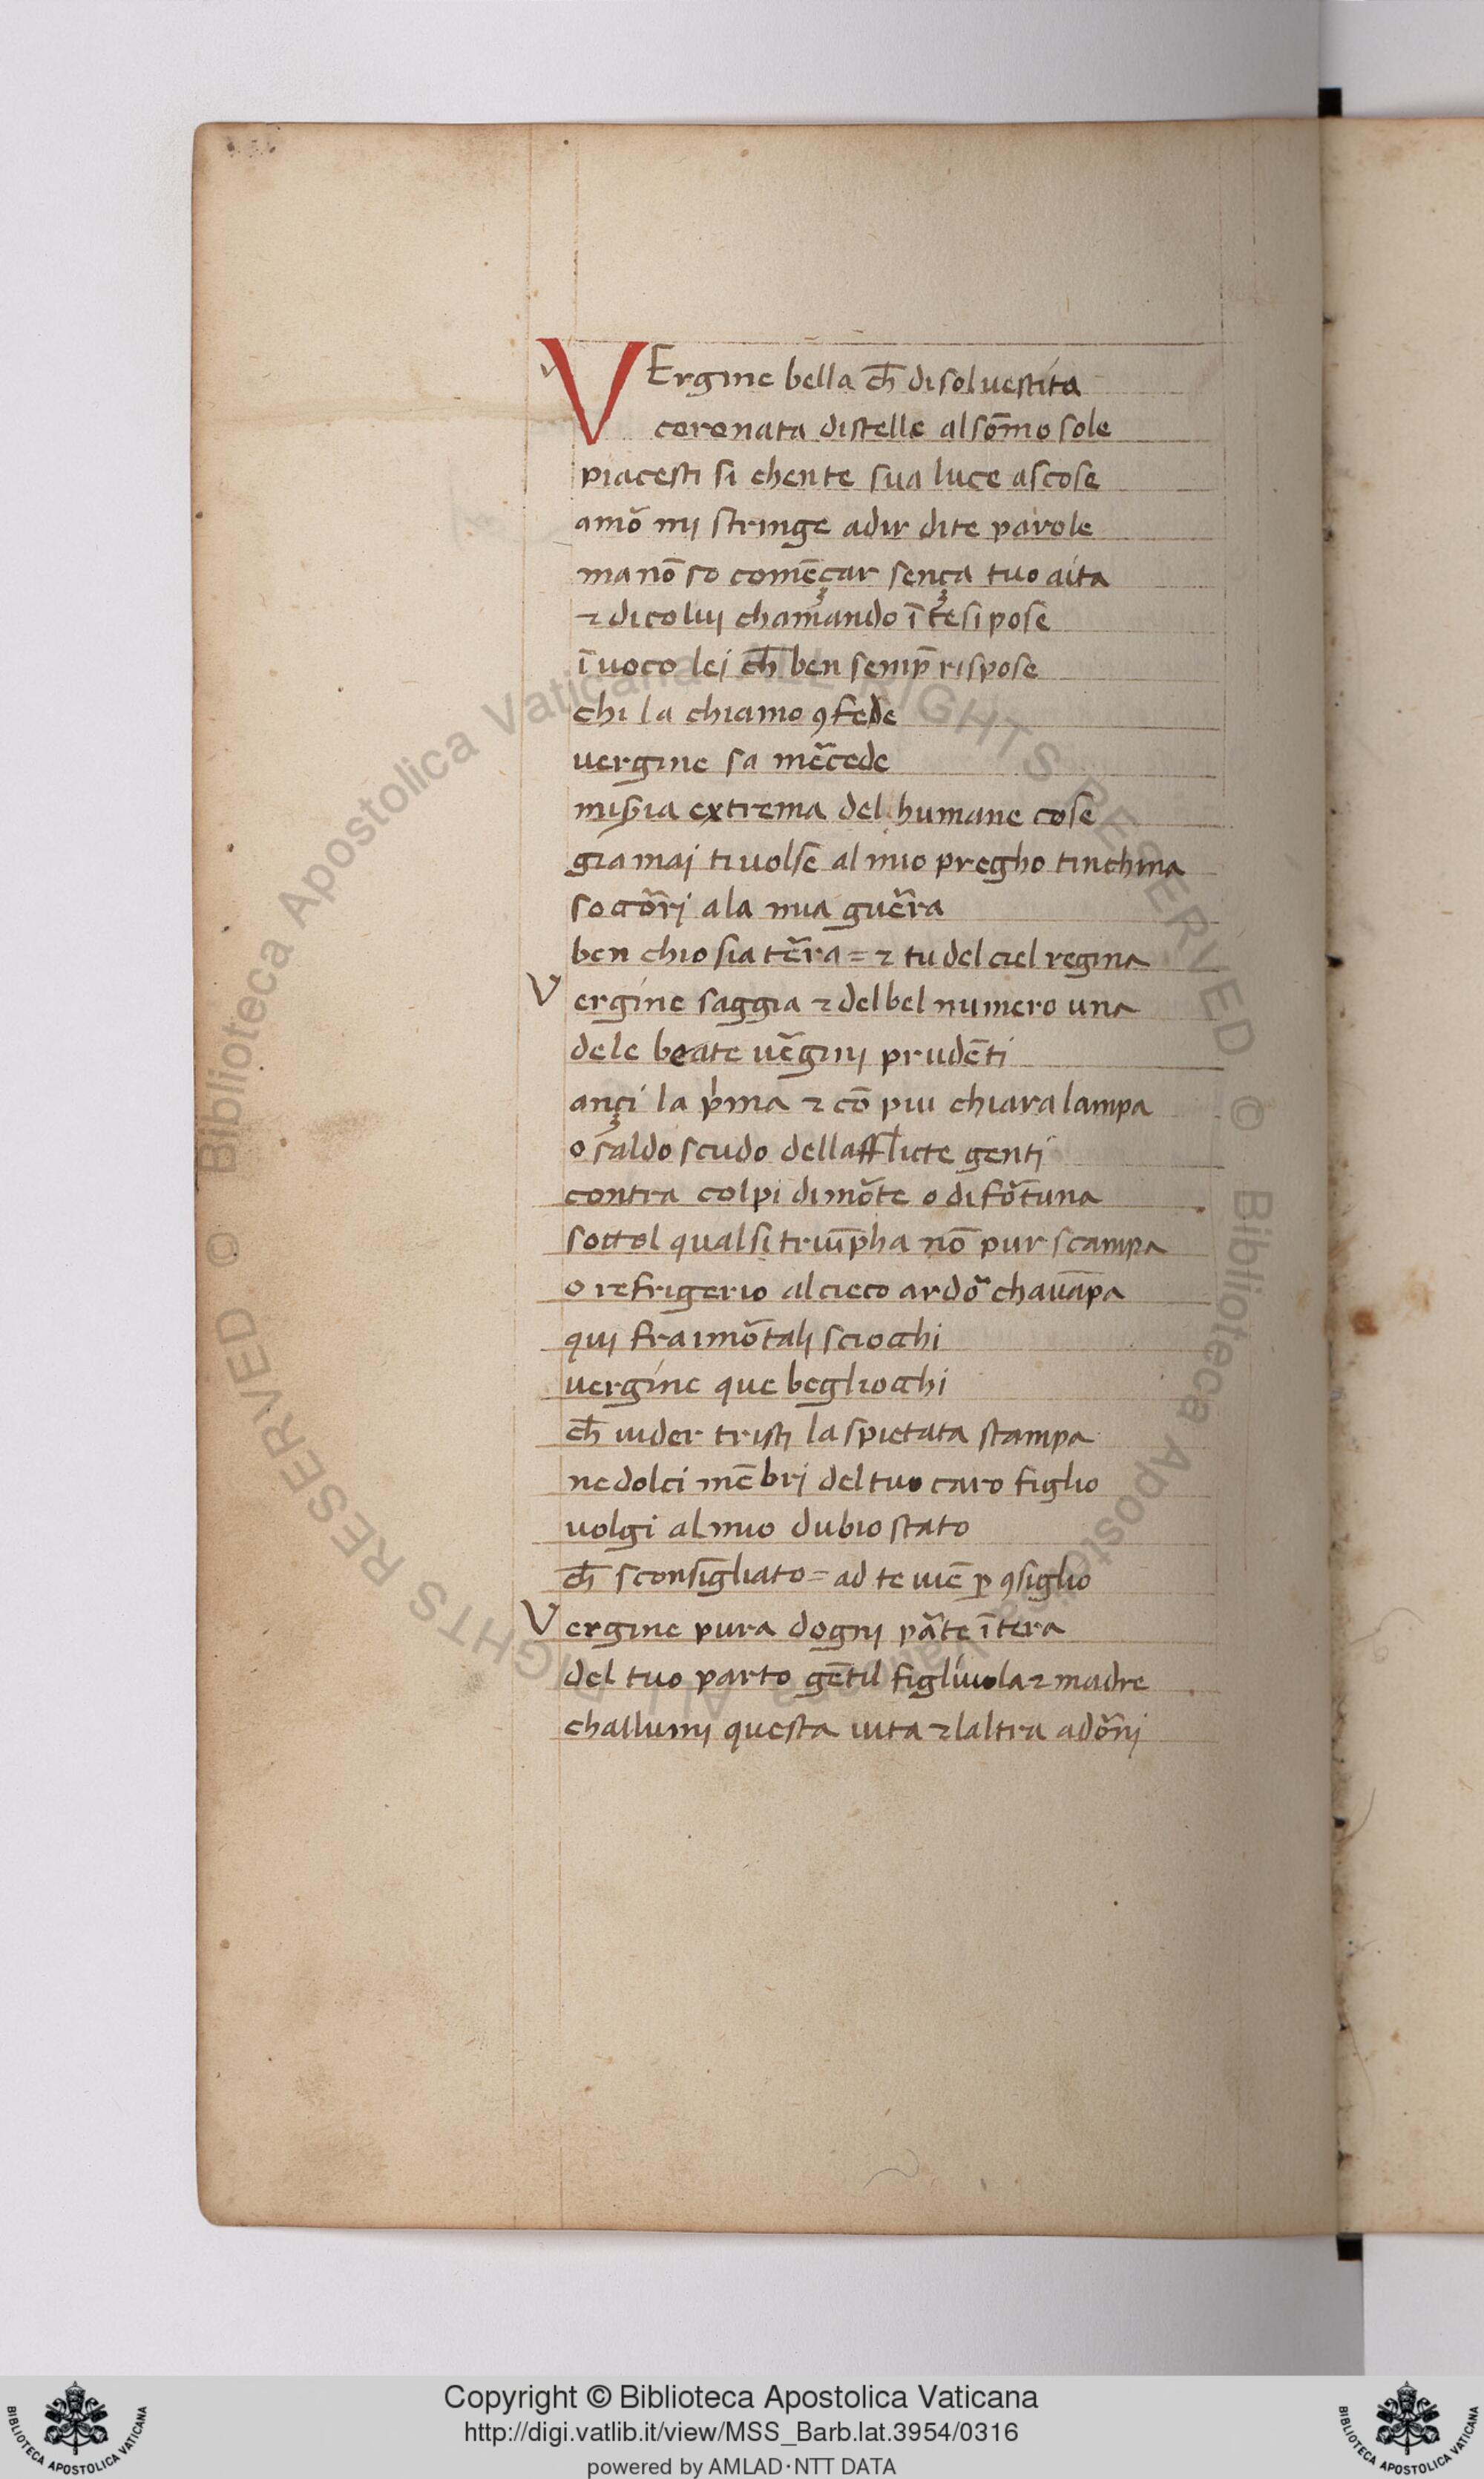 VErgine bella ch̄ di sol uestita
coronata distelle al som̄o sole
piacesti si chente sua luce ascose
amor̃ mj stringe adir dite parole
ma nō so comēçar sença tuo aita
⁊ di coluj chamando ī te si pose
īuoco lej ch̄ ben semp̄ rispose
chi la chiamo ꝯ fede
uergine sa mẽcede
mis̃ia extrema del humane cose
gia maj ti uolse al mio pregho tinchina
soccõrj ala mia guẽra
ben chio sia tẽra = ⁊ tu del ciel regina
Vergine saggia ⁊ del bel numero una
dele beate uẽginj prudētj
ançi la pͥma ⁊ cō piu chiara lampa
o saldo scudo dellafflicte gentj
contra colpi di mõte o di fõtuna
sottol qual si triūpha nō pur scampa
o refrigerio al cieco ardõ chauāpa
quj fra i mõtalj sciocchi
uergine que begliocchi
ch̄ uider tristj la spietata stampa
ne dolci mēbrj del tuo caro figlio
uolgi al mio dubio stato
ch̄ sconsigliato = ad te uiē ꝑ ꝯsiglio
Vergine pura dognj pãte ītera
del tuo parto gētil figliuola ⁊ madre
challumj questa uita ⁊ laltra adõnj
Copyright © Biblioteca Apostolica Vaticana
http://digi.vatlib.it/view/MSS_Barb.lat.3954/0316
powered by AMLAD·NTT DATA
BIBLIOTECA APOSTOLICA VATICANA
BIBLIOTECA APOSTOLICA VATICANA